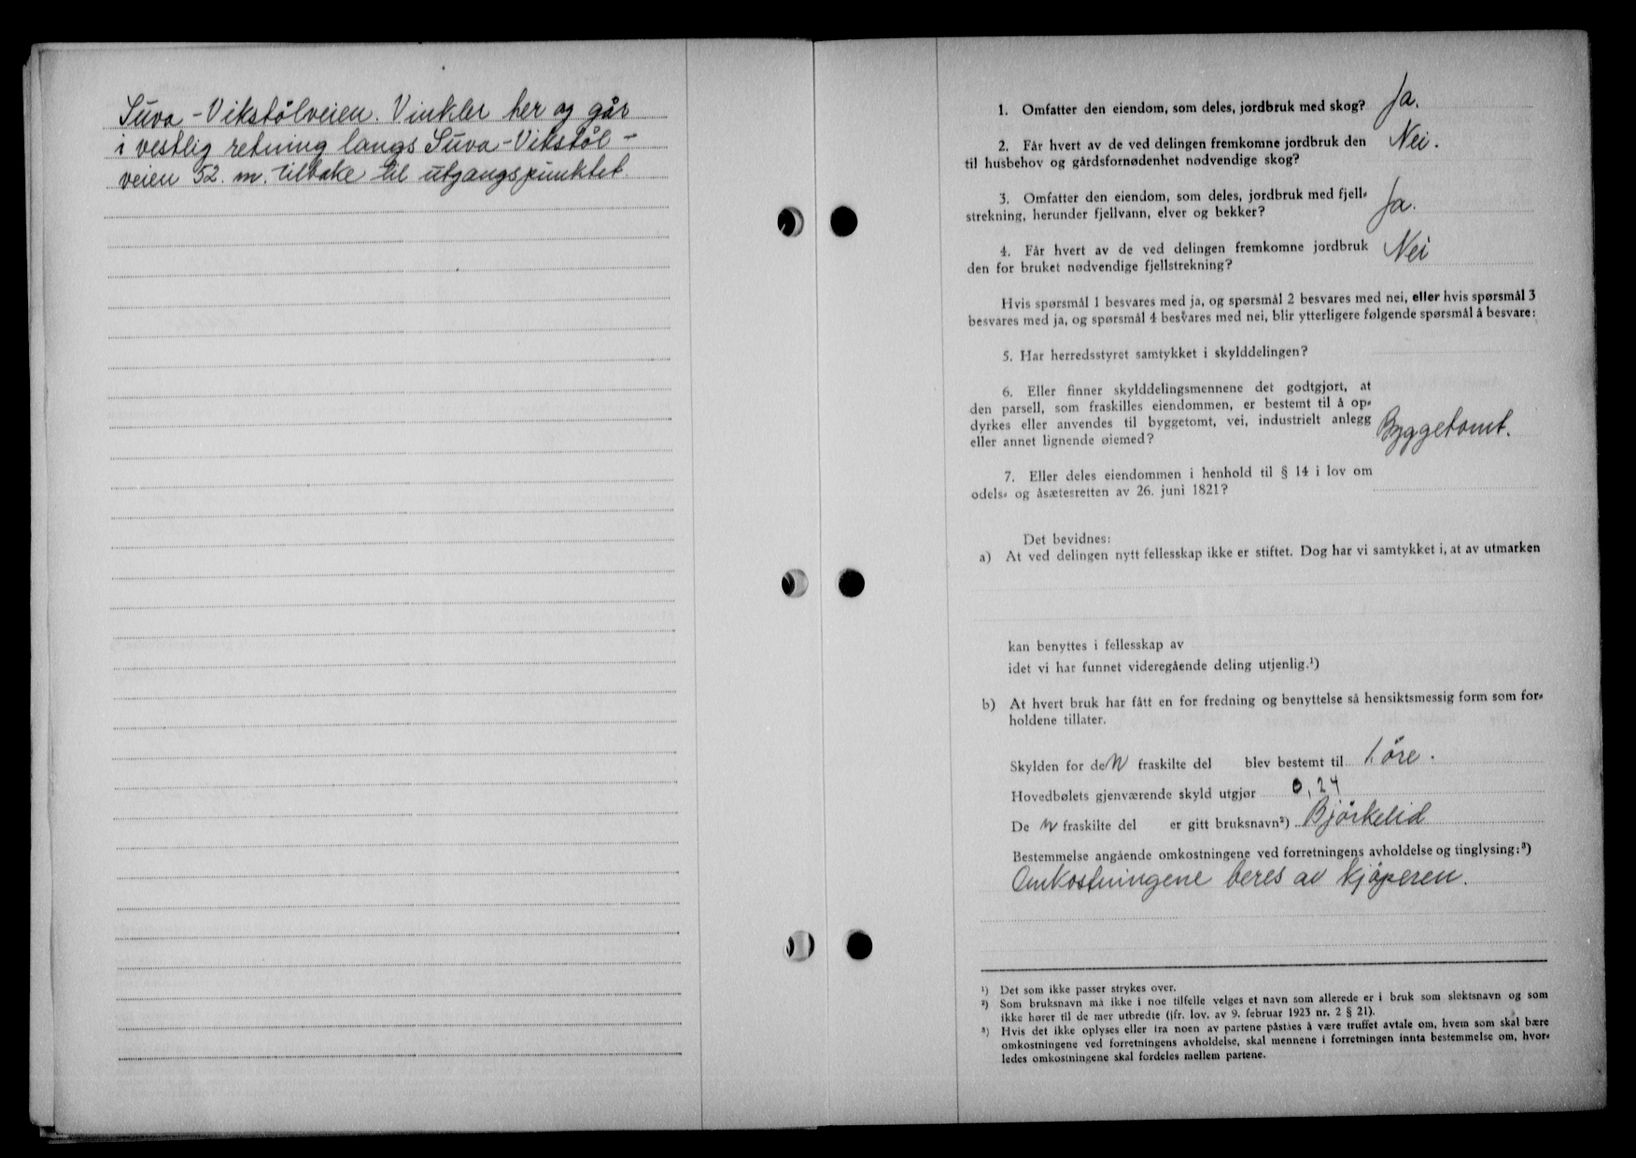 Suva-Vikstølveien. Vinkler her og går
i vestlig retning langs Suva-Vikstøl-
veien 52. m. tilbake til utgangspunktet.
1. Omfatter den eiendom, som deles, jordbruk med skog? Ja.
2. Får hvert av de ved delingen fremkomne jordbruk den Nei.
til husbehov og gårdsfornødenhet nødvendige skog?
3. Omfatter den eiendom, som deles, jordbruk med fjell-
strekning, herunder fjellvann, elver og bekker? Ja.
4. Får hvert av de ved delingen fremkomne jordbruk Nei
den for bruket nødvendige fjellstrekning?
Hvis spørsmål 1 besvares med ja, og spørsmål 2 besvares med nei, eller hvis spørsmål 3
besvares med ja, og spørsmål 4 besvares med nei, blir ytterligere følgende spørsmål å besvare:
5. Har herredsstyret samtykket i skylddelingen?
6. Eller finner skylddelingsmennene det godtgjort, at
den parsell, som fraskilles eiendommen, er bestemt til å op-
dyrkes eller anvendes til byggetomt, vei, industrielt anlegg Byggetomt.
eller annet lignende øiemed?
7. Eller deles eiendommen i henhold til § 14 i lov om
odels- og åsætesretten av 26. juni 1821?
Det bevidnes:
a) At ved delingen nytt fellesskap ikke er stiftet. Dog har vi samtykket i, at av utmarken
kan benyttes i fellesskap av
idet vi har funnet videregående deling utjenlig.¹)
b) At hvert bruk har fått en for fredning og benyttelse så hensiktsmessig form som for-
holdene tillater.
Skylden for den fraskilte del blev bestemt til 1. øre.
Hovedbølets gjenværende skyld utgjør 0,24
De n fraskilte del er gitt bruksnavn²) Bjørkelid
Bestemmelse angående omkostningene ved forretningens avholdelse og tinglysing:³)
Omkostningene beres av kjøperen.
¹) Det som ikke passer strykes over.
²) Som bruksnavn må ikke i noe tilfelle velges et navn som allerede er i bruk som slektsnavn og som
ikke hører til de mer utbredte (jfr. lov. av 9. februar 1923 nr. 2 § 21).
³) Hvis det ikke oplyses eller fra noen av partene påstaes å være truffet avtale om, hvem som skal bære
omkostningene ved forretningens avholdelse, skal mennene i forretningen innta bestemmelse om, hvor-
ledes omkostningene skal fordeles mellem partene.